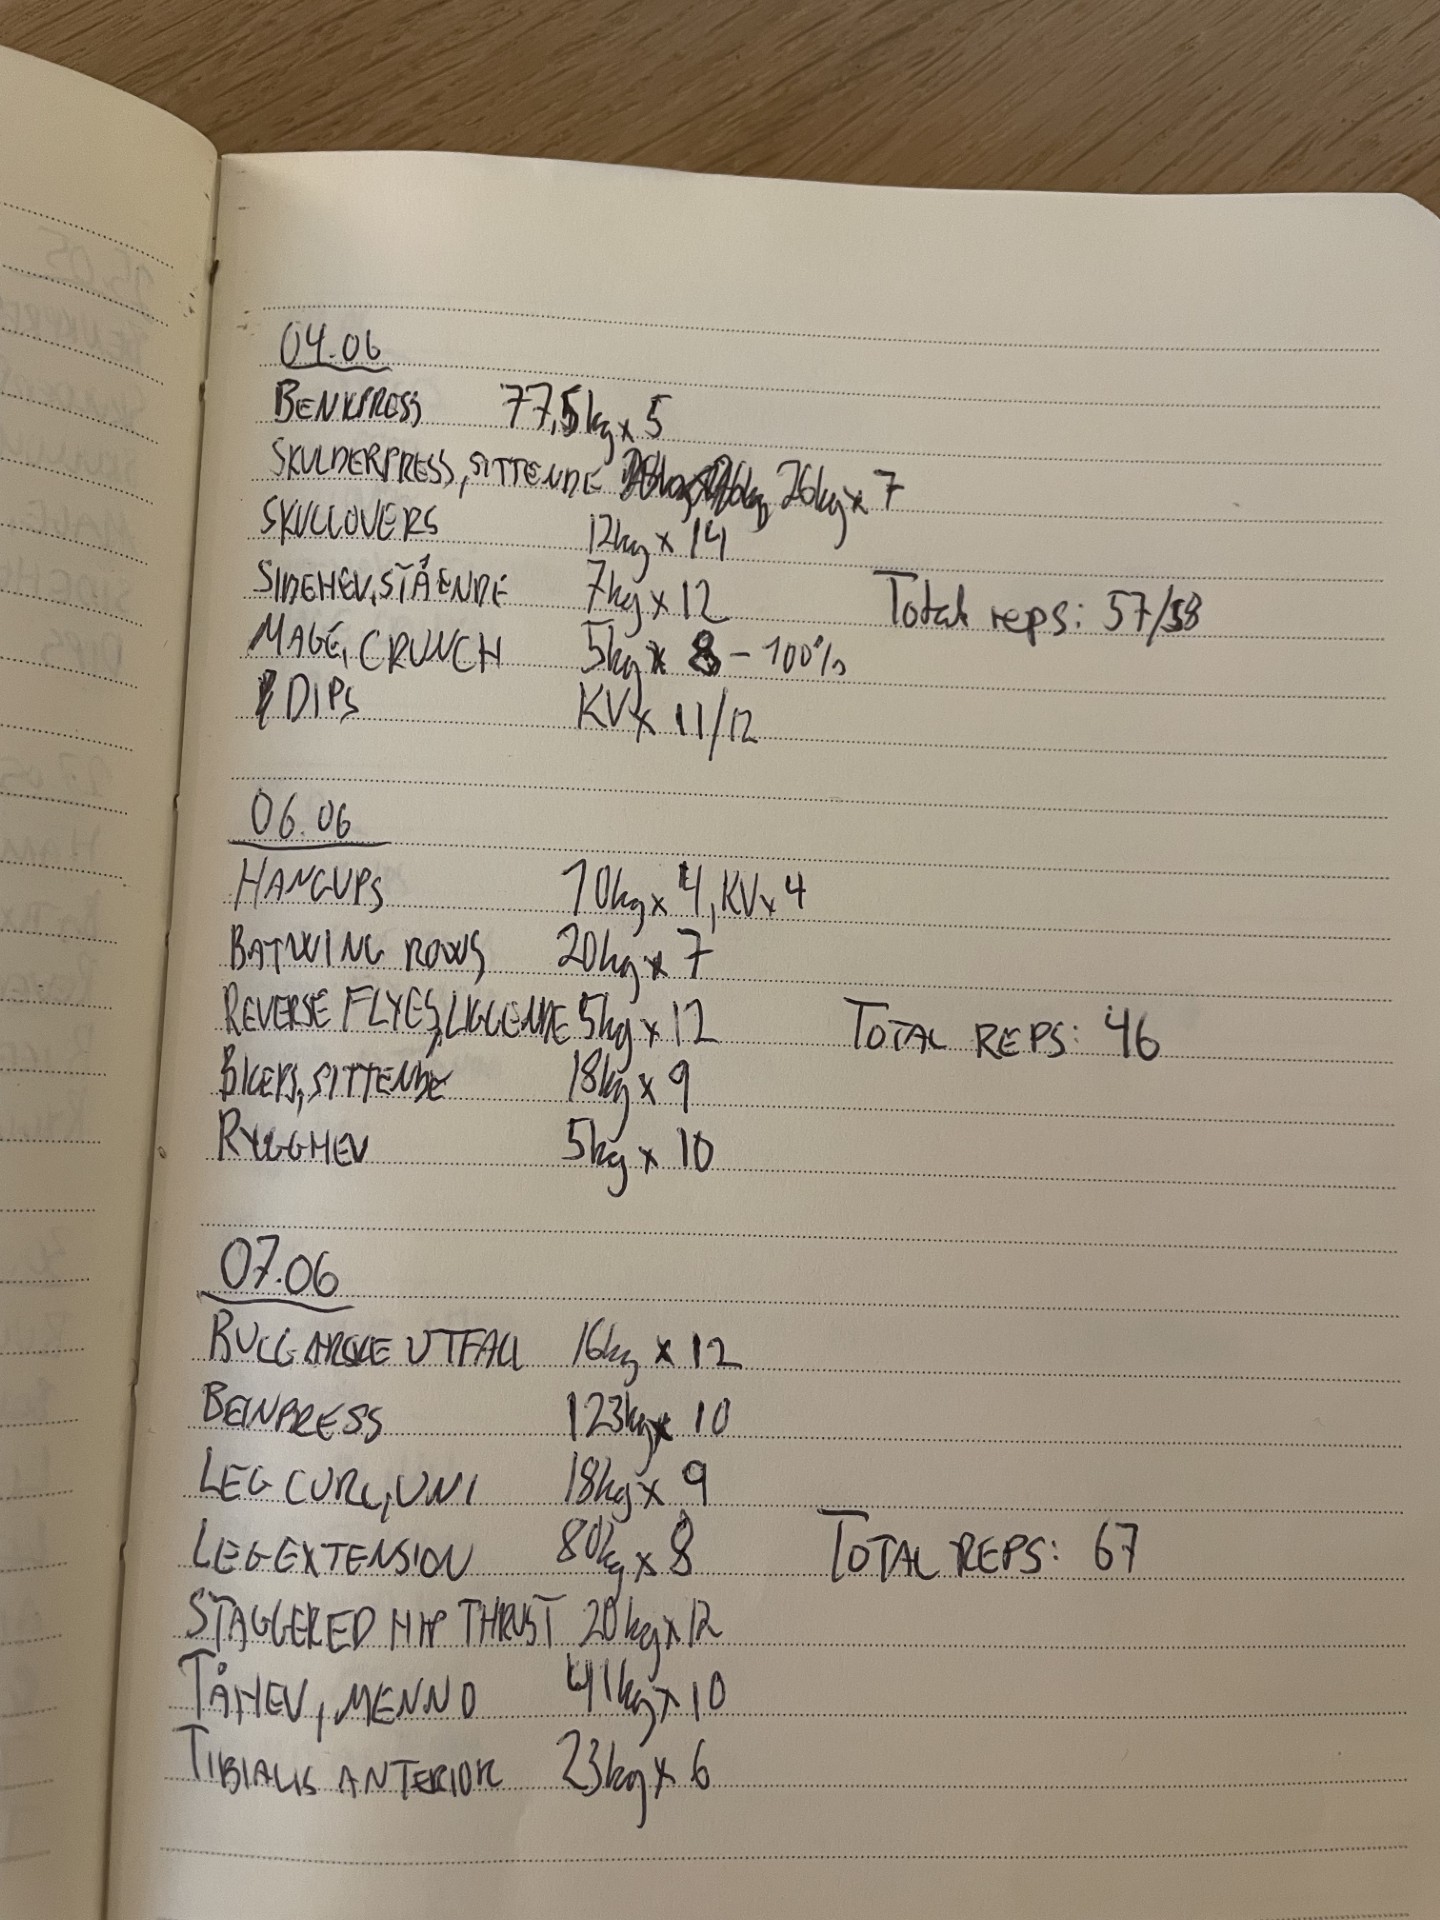 04.06
BENKPRESS 77,5kg x 5
SKULDERPRESS, SITTENDE 26kg x 7
SKULLOVERS 12kg x 14
SIDEHEV, STÅENDE 7kg x 12
Total reps: 57/58
MAGE, CRUNCH 5kg x 8 - 100%
DIPS KV x 11/12
06.06
HANGUPS 10kg x 4, KV x 4
BATWING ROWS 20kg x 7
REVERSE FLYES, LIGGENDE 5kg x 12
TOTAL REPS: 46
BICEPS, SITTENDE 18kg x 9
RYGGHEV 5kg x 10
07.06
BULGARSKE UTFALL 16kg x 12
BEINPRESS 123kg x 10
LEG CURL, UNI 18kg x 9
LEG EXTENSION 80kg x 8
TOTAL REPS: 67
STAGGERED HIP THRUST 20kg x 12
TÅHEV, MENNO 41kg x 10
TIBIALIS ANTERIOR 23kg x 6